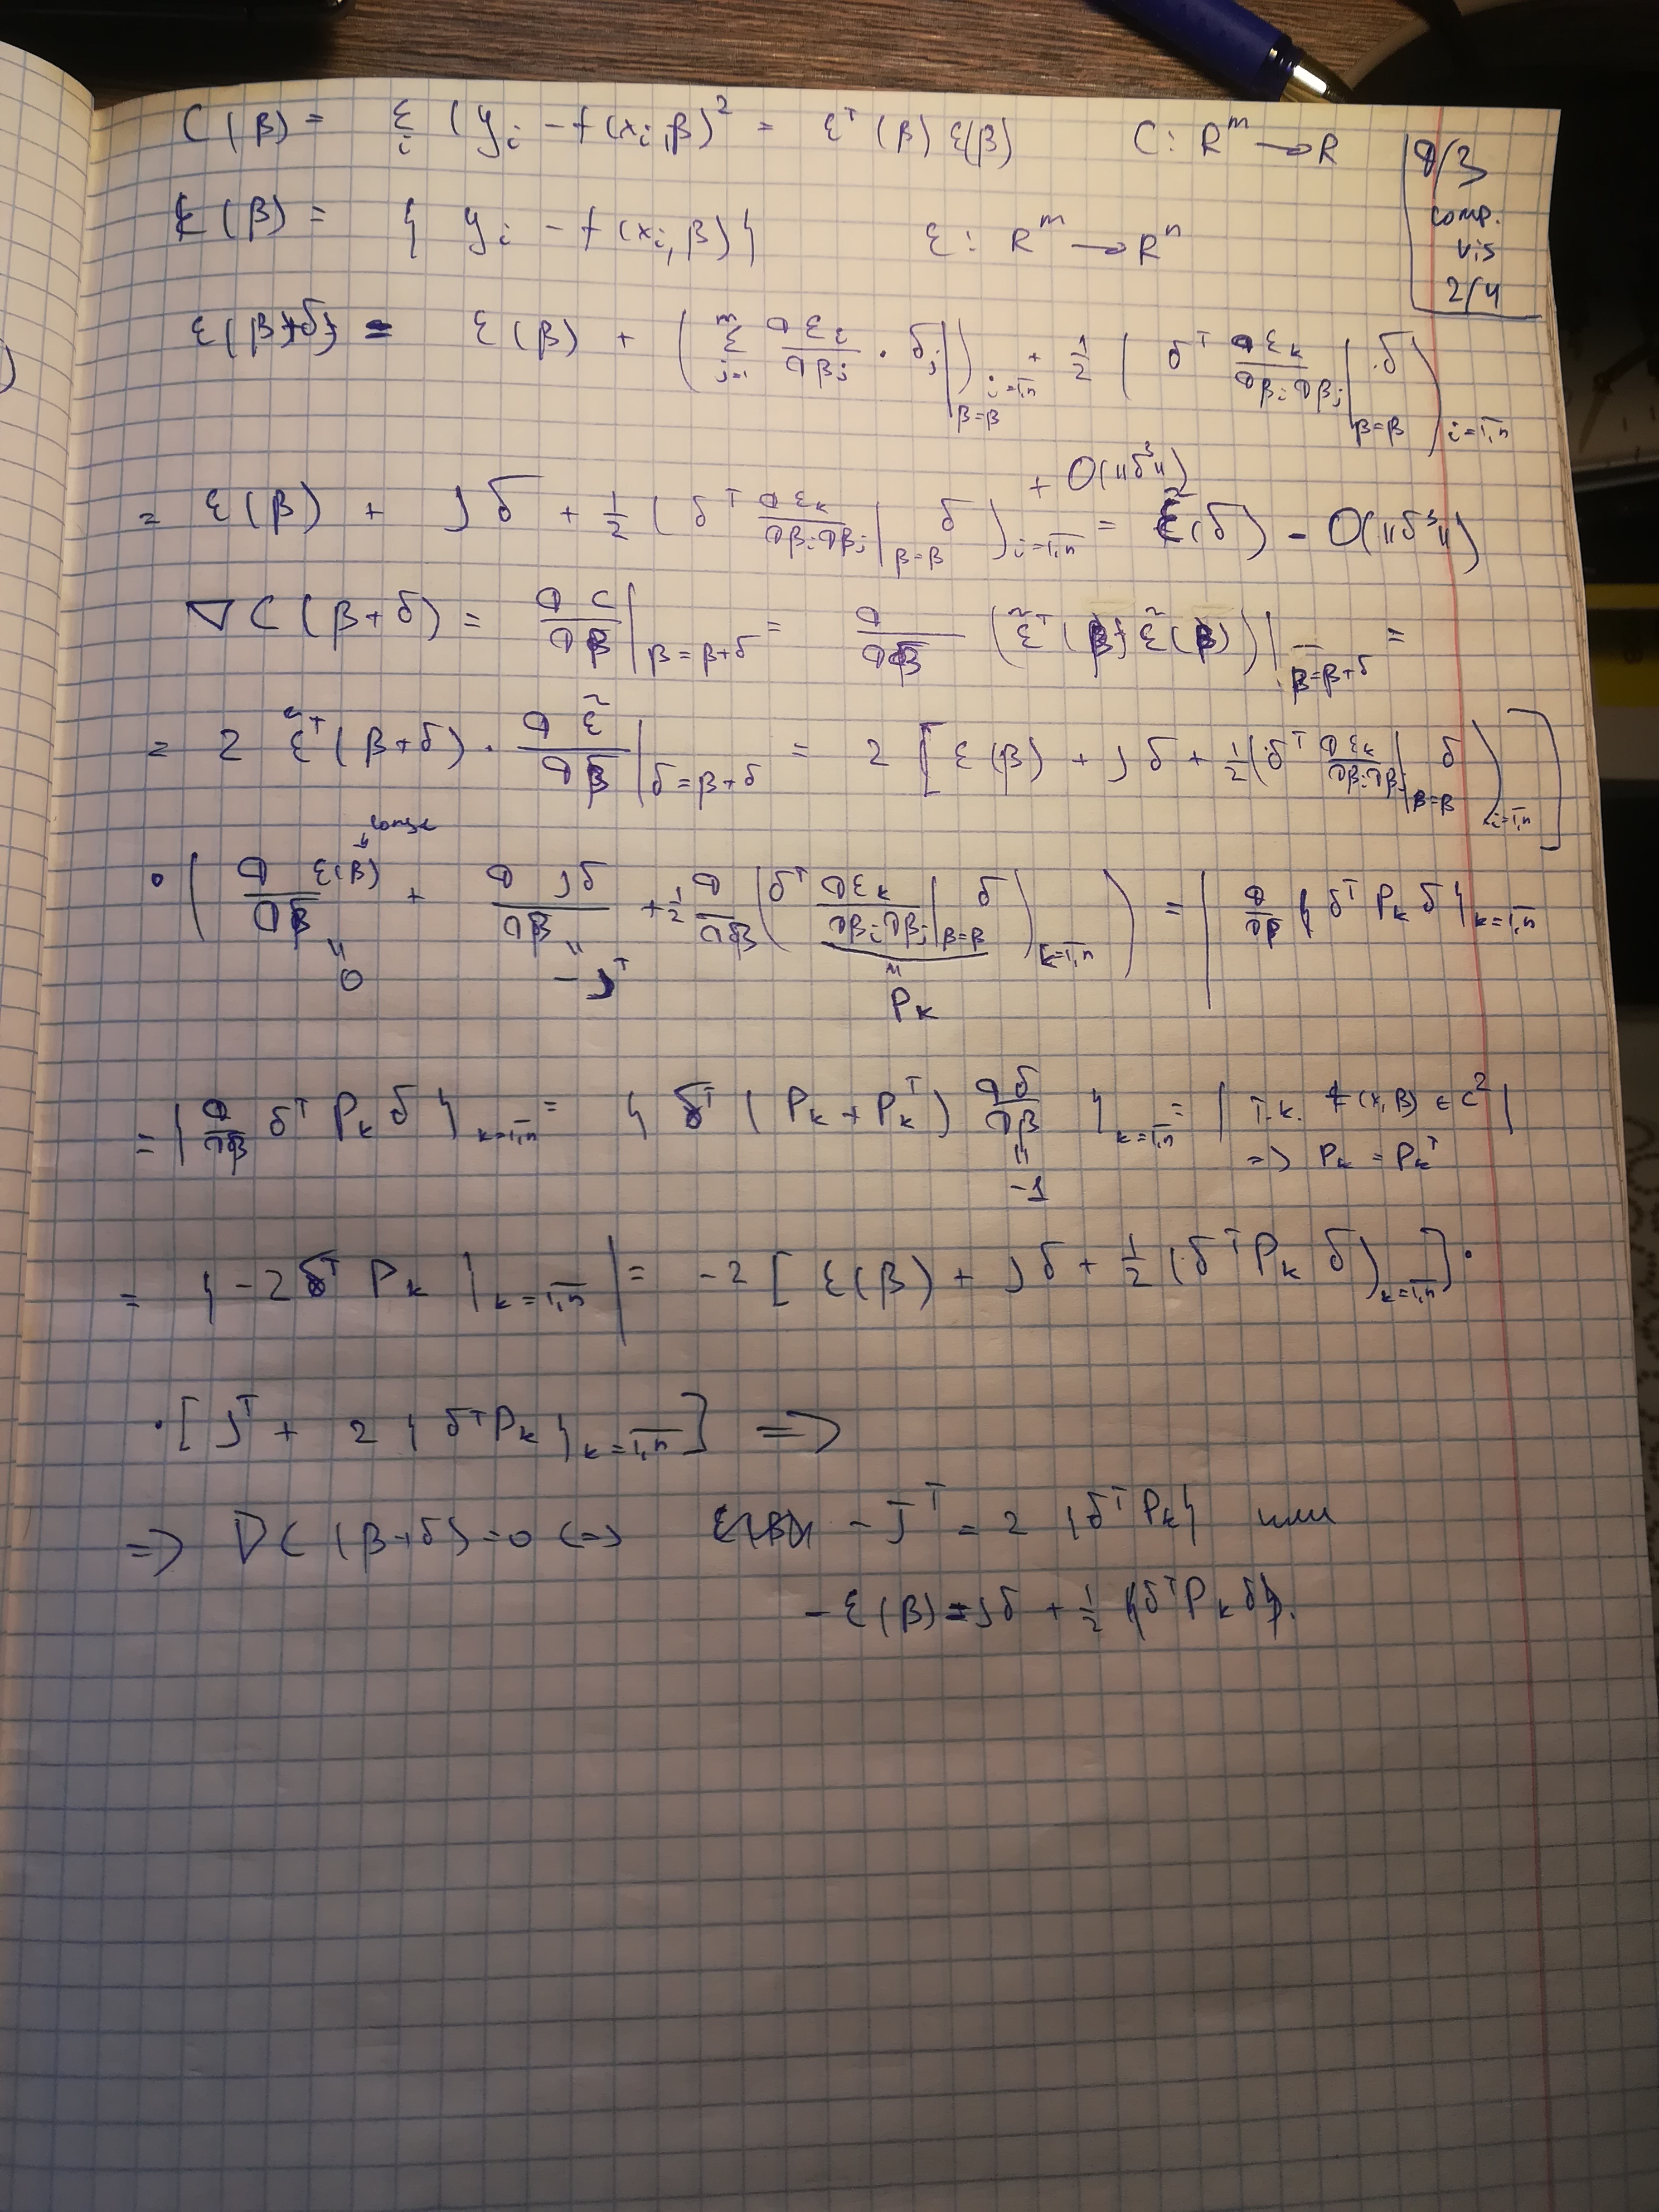 C(β) = Σ_i (y_i − f(x_i, β)^2 = ε^T(β) ε(β)    C: R^m → R
д/з
comp.
vis
2/4
ε(β) = { y_i − f(x_i, β) }    ε: R^m → R^n
ε(β+δ) = ε(β) + (Σ_{j=1}^m ∂ε_i/∂β_j · δ_j |_{β=β})_{i=1,n} + 1/2 (δ^T ∂ε_k/∂β_i∂β_j |_{β=β} · δ)_{i=1,n}
+ O(||δ^3||)
= ε(β) + Jδ + 1/2 (δ^T ∂ε_k/∂β_i∂β_j |_{β=β} δ)_{i=1,n} = ε̃(δ) − O(||δ^3||)
∇C(β+δ) = ∂C/∂β |_{β=β+δ} = ∂/∂β (ε̃^T(β) ε̃(β)) |_{β=β+δ} =
= 2 ε̃^T(β+δ) · ∂ε̃/∂β |_{δ=β+δ} = 2 [ε(β) + Jδ + 1/2 (δ^T ∂ε_k/∂β_i∂β_j |_{β=β} δ)_{i=1,n}]
const
· (∂ε(β)/∂β + ∂Jδ/∂β + 1/2 ∂/∂β (δ^T ∂ε_k/∂β_i∂β_j |_{β=β} δ)_{k=1,n}) = | ∂/∂β { δ^T P_k δ }_{k=1,n}
= 0    = −J^T    = P_k
= { ∂/∂β δ^T P_k δ }_{k=1,n} = { δ^T (P_k + P_k^T) ∂δ/∂β }_{k=1,n} = | т.к. f(x,β) ∈ C^2 |
= −1    => P_k = P_k^T
= { −2δ^T P_k }_{k=1,n} | = −2 [ε(β) + Jδ + 1/2 (δ^T P_k δ)_{k=1,n}] ·
· [J^T + 2 { δ^T P_k }_{k=1,n}] =>
=> ∇C(β+δ)=0 <=> −J^T = 2 {δ^T P_k} или
−ε(β) = Jδ + 1/2 {δ^T P_k δ}.